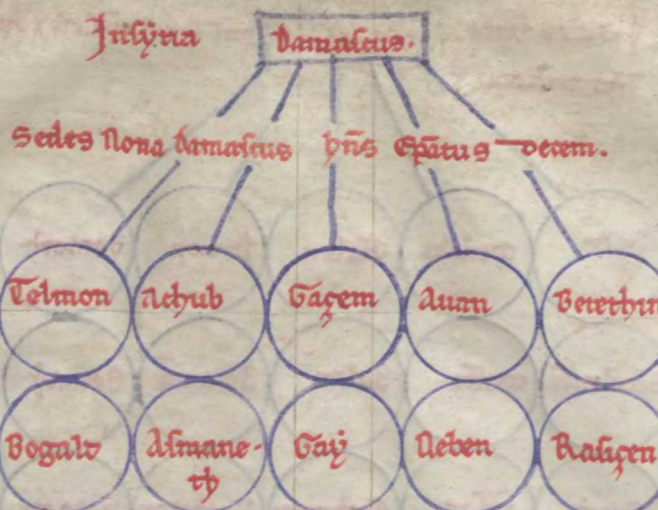 In sẏria Damascus.
Sedes Nona damascus hn̄s Ep̄atus decem.
Telmon Achub Gaçem Auan Berethin
Bogald Asmane-
th Gaẏ Neben Rasiçen